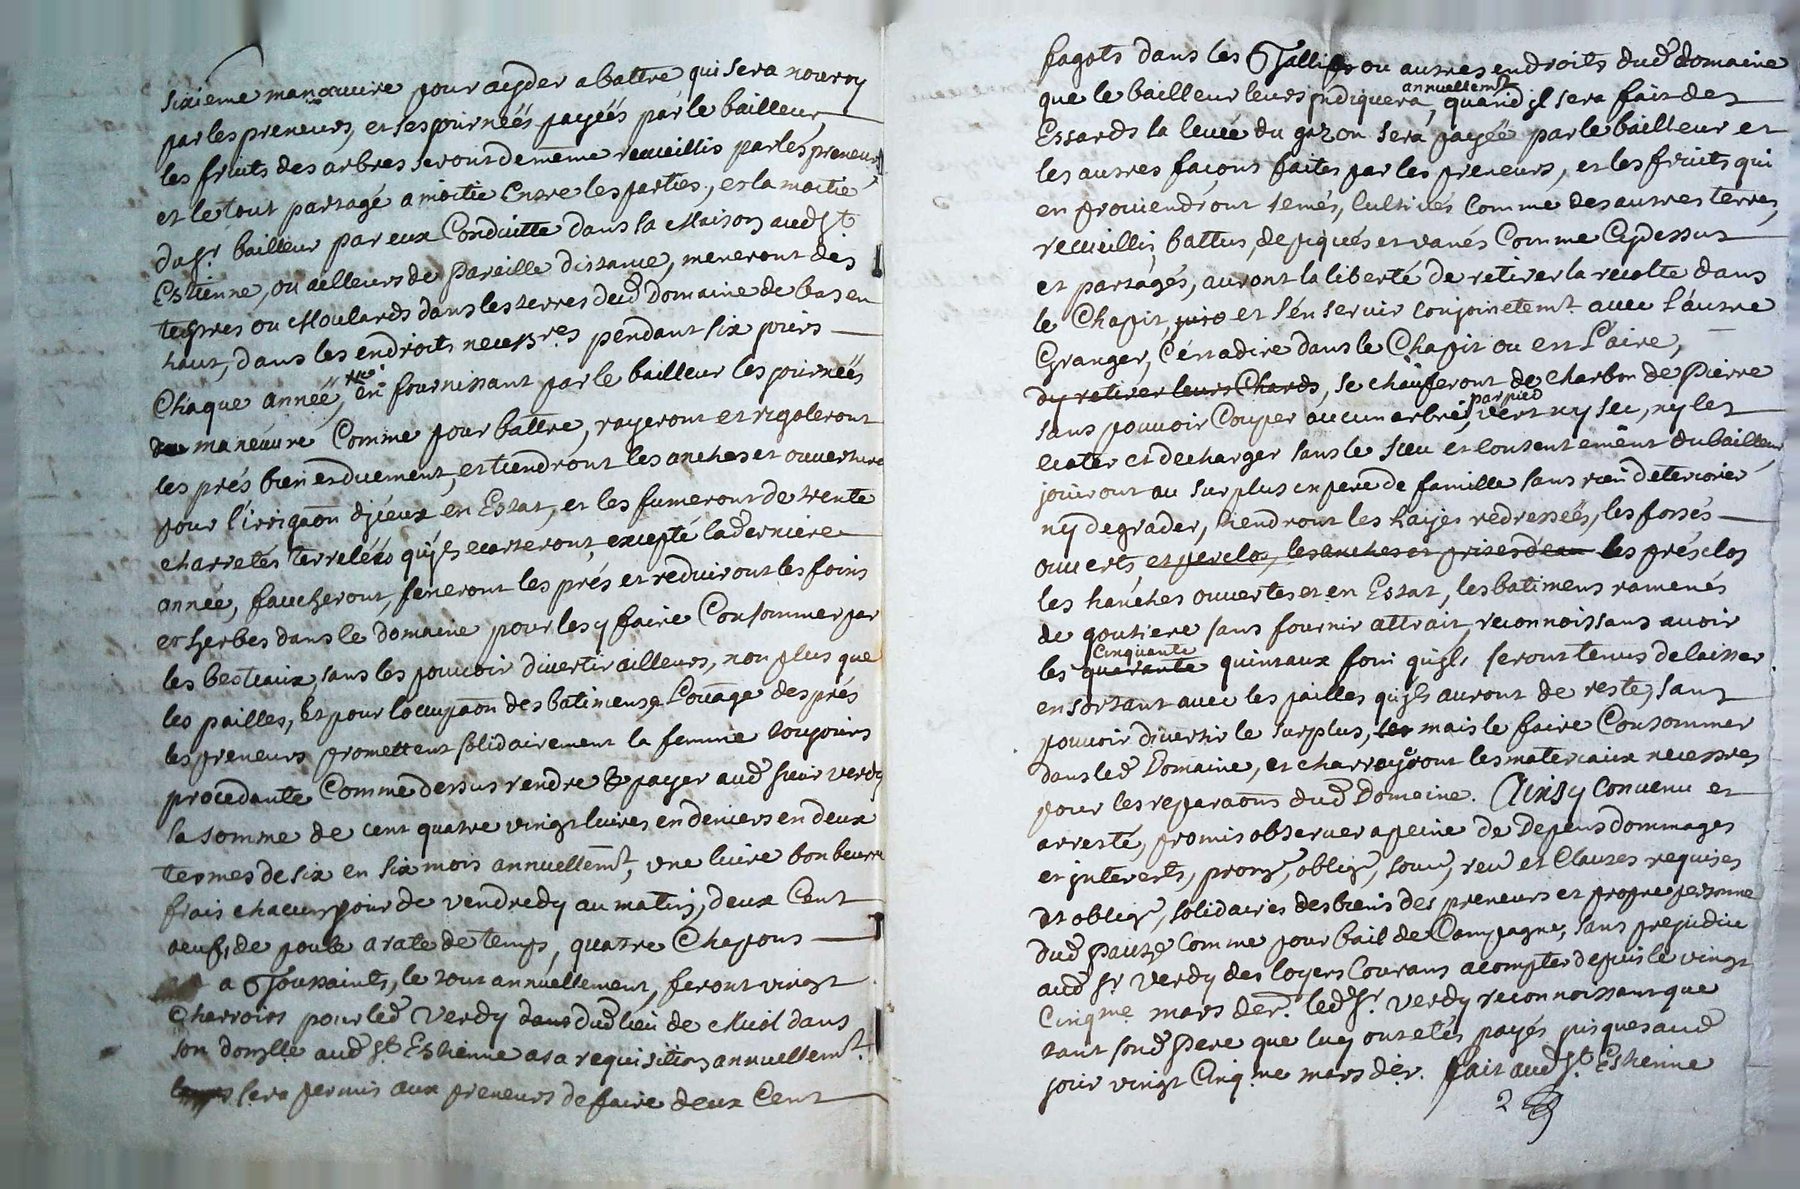 sixieme manœuvre pour ayder a battre qui sera nourry
par les preneurs, et ses journéés payéés par le bailleur,
les fruits des arbres seront de meme recueillis par les preneurs
et le tout partagé a moitié Entre les parties, et la moitié
du Sr. bailleur par eux Conduitte dans la Maison aud St
Estienne, ou ailleurs de pareille distance, meneront des
tertres ou Moulards dans les terres dud Domaine de bas en
haut, dans les endroits necessres pendant six jours
Chaque année, en fournissant par le bailleur les journéés
de manœuvre Comme pour battre, rayeront et rigoleront
les prés bien et duement, et tiendront les anches et ouverture
pour l'irrigaon d'jceux en Estat, et les fumeront de trente
charretés terreléés qu'jls ecarteront, excepté la derniere
année, faucheront, feneront les prés et reduiront les foins
et herbes dans le domaine pour les y faire Consommer par
les bestiaux sans les pouvoir divertir ailleurs, non plus que
les pailles, Et pour l'occupaon des batimens & Louage des prés
les preneurs promettent solidairement la femme toujours
procedante Comme dessus rendre & payer aud sieur verdy
la somme de cent quatre vingt livres en deniers en deux
termes de six en six mois annuellemt, une livre bon beurre
frais chacun jour de vendredy au matin, deux Cent
oeufs de poule a rate de temps, quatre Chapons
a Toussaints, le tout annuellement, feront vingt
Charrois pour led Verdy dud lieu de Miol dans
son domlle aud St Estienne a sa requisition annuellemt.
sera permis aux preneurs de faire deux Cent
fagots dans les Taillis ou autres endroits dud domaine
que le bailleur leurs jndiquera annuellemt, quand jl sera fait des
Essards la levée du gazon sera payéé par le bailleur et
les autres façons faites par les preneurs, et les fruits qui
en proviendront semés, Cultivés Comme des autres terres,
recueillis, battus, depiqués et vanés Comme Cy dessus
et partagés, auront la liberté de retirer la recolte dans
le Chapit, et s'én servir conjointemt. avec l'autre
Granger, C'ést a dire dans le Chapit ou est l'aire,
dy retirer leurs Chards, se chauferont de charbon de Pierre
sans pouvoir Couper aucun arbre par pied, vert ny sec, ny les
ecater et decharger sans le sceu et consentement du bailleur,
joüiront au surplus en pere de famille sans rien deteriorer
ny degrader, tiendront les hayes redresséés, les fossés
ouverts et prés clos, les anches et prises d'eau les prés clos
les hanches ouvertes et en Estat, les batimens ramenés
de goutiere sans fournir attrait, reconnoissans avoir
les quarante Cinquante quintaux foin qu'jls seront tenus delaisser
en sortant avec les pailles qu'jls auront de reste, sans
pouvoir divertir le surplus, mais le faire Consommer
dans led Domaine, et charroyeront les materiaux necessres
pour les reparaons dud Domaine. Ainsy Convenu et
arresté, promis observer a peine de Depens dommages
et jnterests, prome, oblige, soue, ren et Clauses requises
et oblige, solidaires des biens des preneurs et propre personne
dud pauze Comme pour bail de Campagne, sans prejudice
aud Sr Verdy des loyers Courans a compter depuis le vingt
Cinqme mars der. led Sr Verdy reconnoissant que
tant sond Pere que luy ont etés payés jusques aud
jour vingt Cinqme mars der. fait aud St Estienne
2